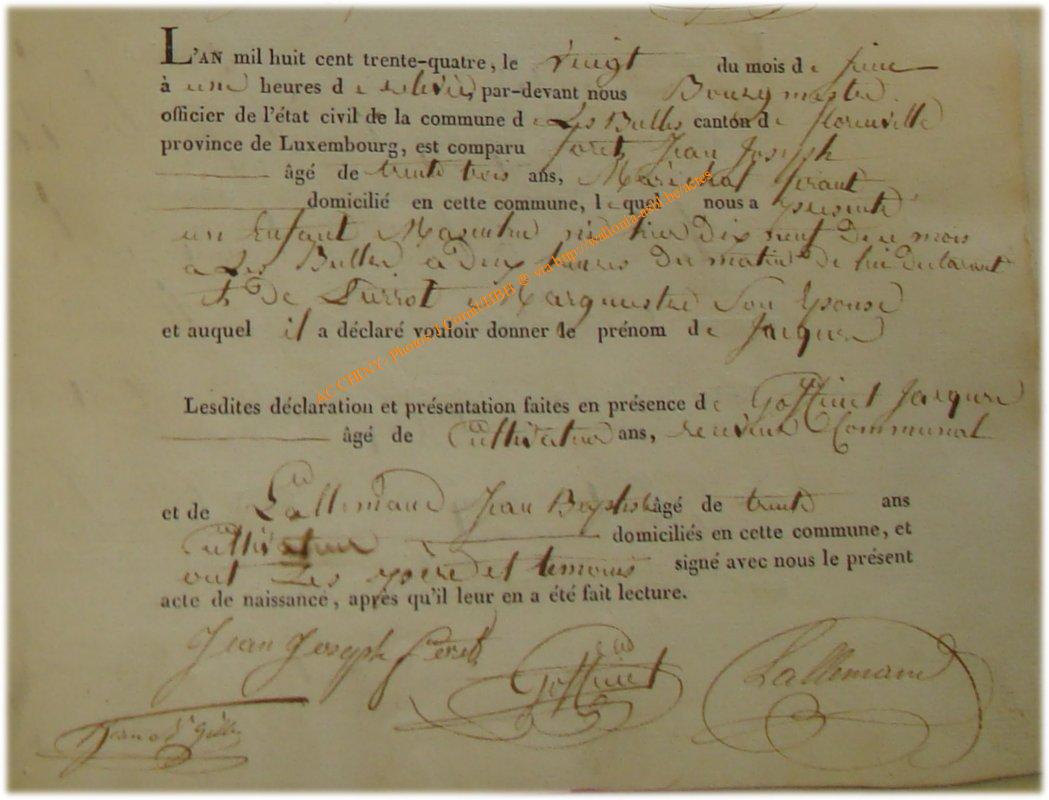 L'AN mil huit cent trente-quatre, le vingt du mois de
à une heures de relevée, par-devant nous Bourgmestre
officier de l'état civil de la commune de Les Bulles canton de florenville
province de Luxembourg, est comparu Jean Joseph
âgé de trente trois ans, Maréchal ferant
domicilié en cette commune, lequel nous a présenté
un Enfant Masculin né hier dix neuf de ce mois
a Les Bulles à deux heures du matin de lui declarant
et de Pierrot Marguerite Son Epouse
et auquel il a déclaré vouloir donner le prénom de Jacques
Lesdites déclaration et présentation faites en présence de Goffinet Jacques
âgé de Cultivateur ans, receveur Communal
et de Lallemand Jean Baptiste âgé de trente ans
Cultivateur domiciliés en cette commune, et
ont Les père et temoins signé avec nous le présent
acte de naissance, après qu'il leur en a été fait lecture.
Jean Joseph
Goffinet
Lallemand
AC CHINY - Photos J.CornetBBB @ via http://wallonia-asbl.be/actes